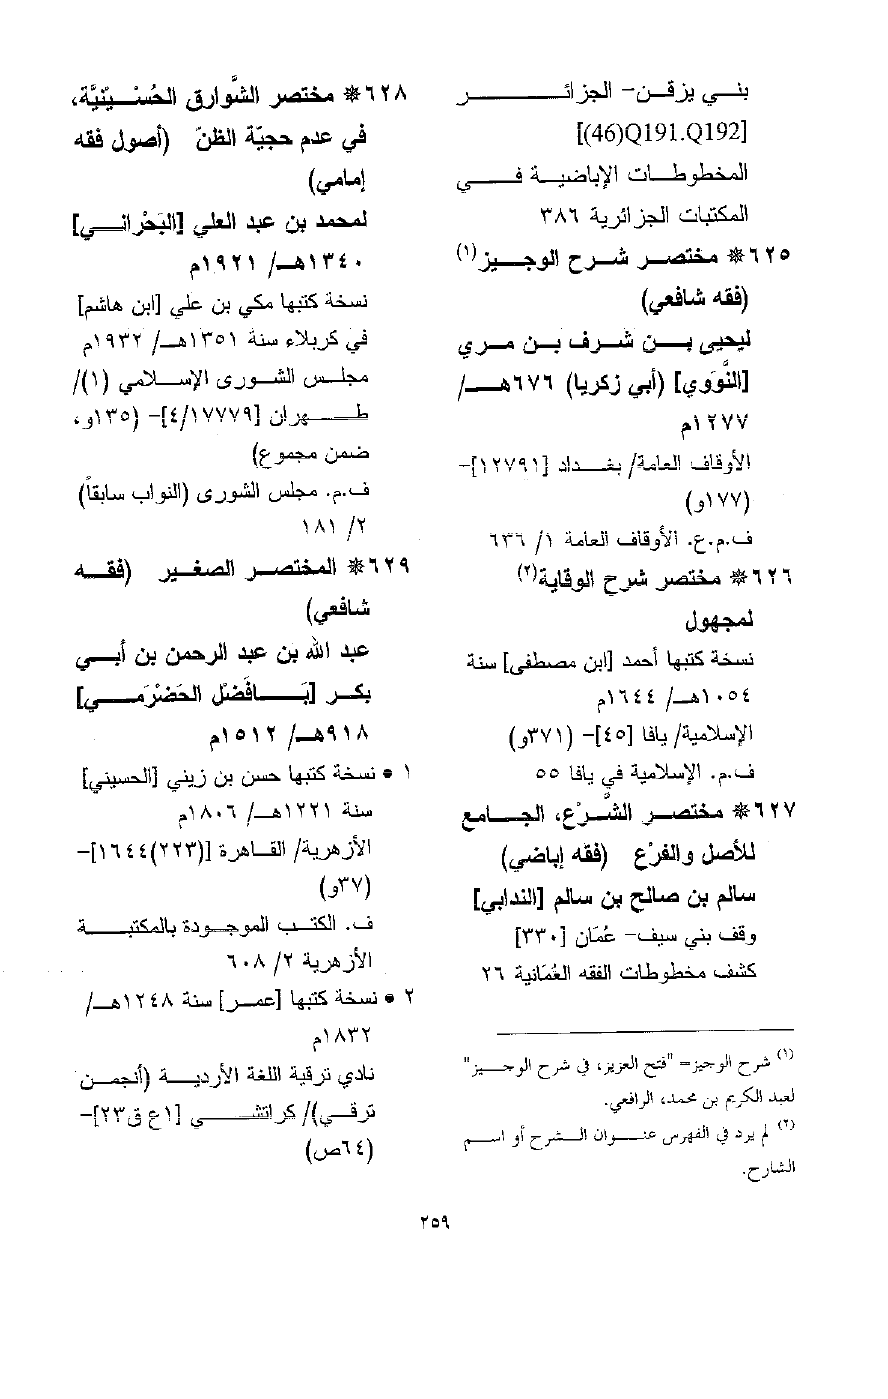 بنـي يزقـن- الجزائـــــــر
[(46)Q191.Q192]
المخطوطـات الإباضيـة فــي
المكتبات الجزائرية ٣٨٦
٦٢٥ * مختصـر شـرح الوجـيـز(١)
(فقه شافعي)
ليحيى بــن شـرف بـن مـري
[النَّوَوي] (أبي زكريا) ٦٧٦هـ/
١٢٧٧م
الأوقاف العامة/ بغـداد [١٢٧٩١]-
(١٧٧و)
ف.م.ع. الأوقاف العامة ١/ ٦٣٦
٦٢٦ * مختصر شرح الوقاية(٢)
لمجهول
نسخة كتبها أحمد [ابن مصطفى] سنة
١٠٥٤هـ/ ١٦٤٤م
الإسلامية/ يافا [٤٥]- (٣٧١و)
ف.م. الإسلامية في يافا ٥٥
٦٢٧ * مختصـر الشَّرْع، الجـامع
للأصل والفرْع (فقه إباضي)
سالم بن صالح بن سالم [الندابي]
وقف بني سيف- عُمَان [٣٣٠]
كشف مخطوطات الفقه العُمَانية ٢٦
(١) شرح الوجيز= "فتح العزيز، في شرح الوجـيز"
لعبد الكريم بن محمد، الرافعي.
(٢) لم يرد في الفهرس عنـوان الـشرح أو اسـم
الشارح.
٦٢٨ * مختصر الشَّوارق الحُسَـيْنيَّة،
في عدم حجيّة الظنّ (أصول فقه
إمامي)
لمحمد بن عبد العلي [البَحْرانـي]
١٣٤٠هـ/ ١٩٢١م
نسخة كتبها مكي بن علي [ابن هاشم]
في كربلاء سنة ١٣٥١هـ/ ١٩٣٢م
مجلـس الشـورى الإسـلامي (١)/
طــــهران [٤/١٧٧٧٩]- (١٣٥و،
ضمن مجموع)
ف.م. مجلس الشورى (النواب سابقاً)
٢/ ١٨١
٦٢٩ * المختصـر الصغـير (فقــه
شافعي)
عبد الله بن عبد الرحمن بن أبـي
بكـر [بَــافَضْل الحَضْرَمــي]
٩١٨هـ/ ١٥١٢م
١ • نسخة كتبها حسن بن زيني [الحسيني]
سنة ١٢٢١هـ/ ١٨٠٦م
الأزهرية/ القـاهرة [(٢٢٣)١٦٤٤]-
(٣٧و)
ف. الكتـب الموجـودة بالمكتبــة
الأزهرية ٢/ ٦٠٨
٢ • نسخة كتبها [عمـر] سنة ١٢٤٨هـ/
١٨٣٢م
نادي ترقية اللغة الأرديــة (أنجمـن
ترقـي)/ كراتشــــي [١ع ق٢٣]-
(٦٤ص)
٢٥٩